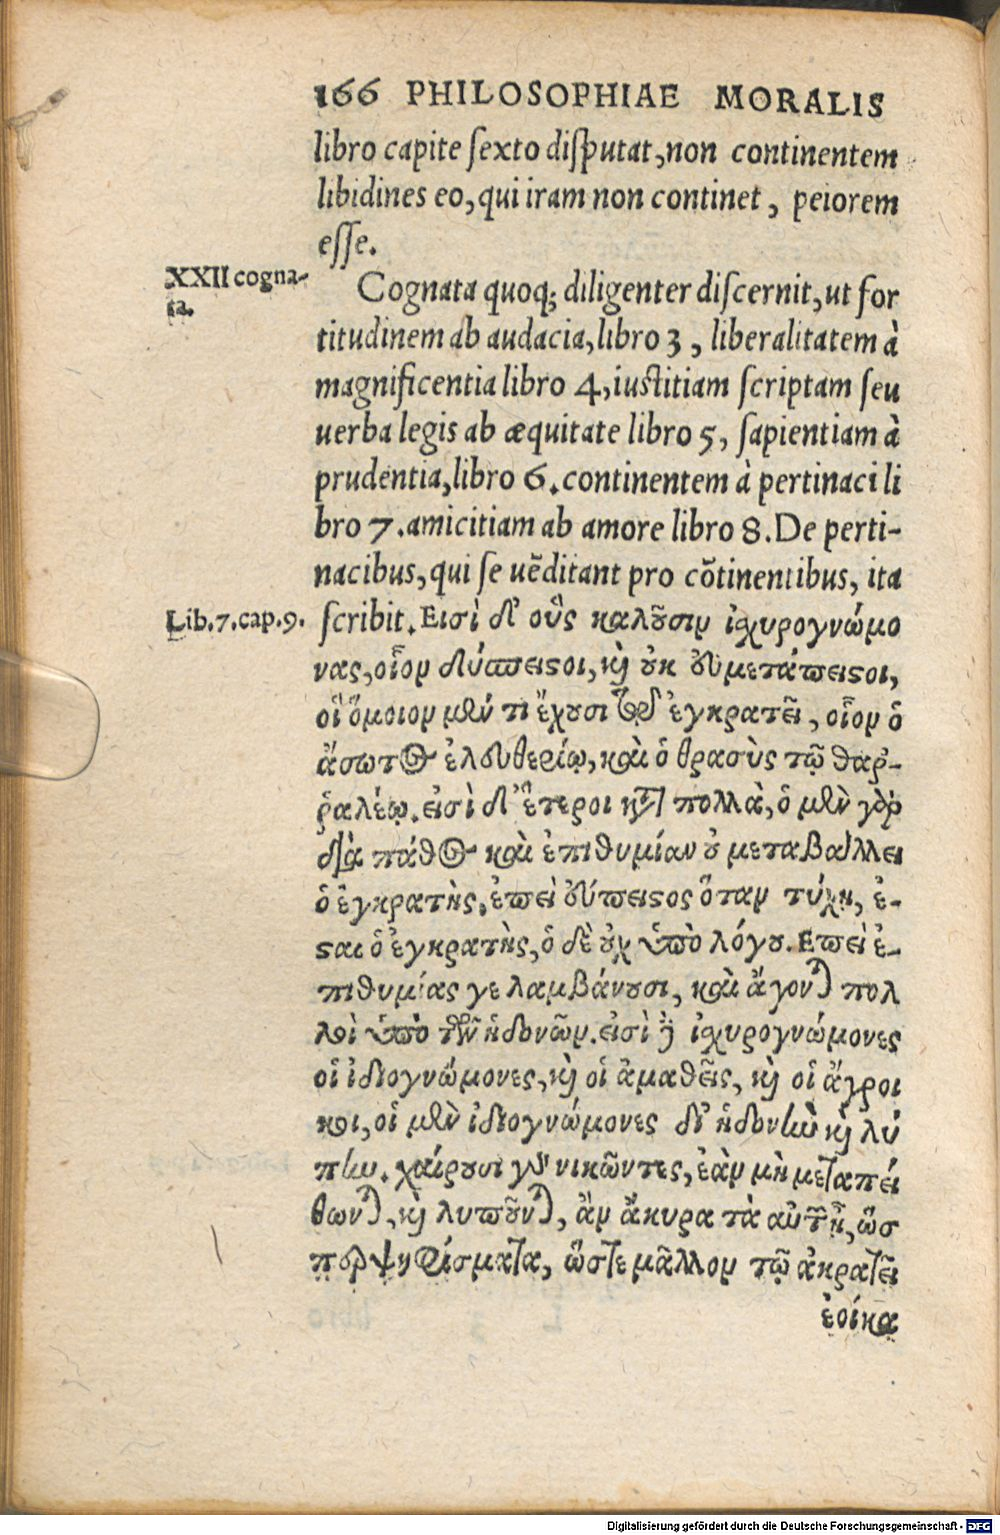 166 PHILOSOPHIAE MORALIS
libro capite ſexto diſputat, non continentem
libidines eo, qui iram non continet, peiorem
eſſe.
XXII cogna-
ta.
Cognata quoq; diligenter diſcernit, ut for
titudinem ab audacia, libro 3, liberalitatem à
magnificentia libro 4, iuſtitiam ſcriptam ſeu
uerba legis ab æquitate libro 5, ſapientiam à
prudentia, libro 6. continentem à pertinaci li
bro 7. amicitiam ab amore libro 8. De perti-
nacibus, qui ſe uēditant pro cōtinentibus, ita
Lib. 7. cap. 9.
ſcribit. Εισὶ δ᾽ οὓς καλοῦσιν ἰχυρογνώμο
νας, οἷον δύσπειςοι, καὶ οὐκ εὐμετάπειςοι,
οἳ ὅμοιον μέν τι ἔχουσι τῷ ἐγκρατεῖ, οἷον ὁ
ἄσωτος ἐλευθερίῳ, καὶ ὁ θρασὺς τῷ θαῤ-
ῥαλέῳ. εἰσὶ δ᾽ ἕτεροι κατὰ πολλὰ, ὁ μὲν γὰρ
διὰ πάθος καὶ ἐπιθυμίαν οὐ μεταβάλλει
ὁ ἐγκρατὴς, ἐπεὶ εὔπειςος ὅταν τύχῃ, ἔ-
ςαι ὁ ἐγκρατὴς, ὁ δὲ οὐχ ὑπὸ λόγου. Επεὶ ἐ-
πιθυμίας γε λαμβάνουσι, καὶ ἄγονται πολ
λοὶ ὑπὸ τῶν ἡδονῶν. εἰσὶ δὲ ἰχυρογνώμονες
οἱ ἰδιογνώμονες, καὶ οἱ ἀμαθεῖς, καὶ οἱ ἄγροι
κοι, οἱ μὲν ἰδιογνώμονες δι᾽ ἡδονὴν καὶ λύ
πην. χαίρουσι γὰρ νικῶντες, ἐὰν μὴ μεταπεί
θωνται, καὶ λυποῦνται, ἂν ἄκυρα τὰ αὐτῶν ᾖ, ὥσ
περ ψηφίσματα, ὥστε μᾶλλον τῷ ἀκρατεῖ
ἐοίκα
Digitalisierung gefördert durch die Deutsche Forschungsgemeinschaft - DFG